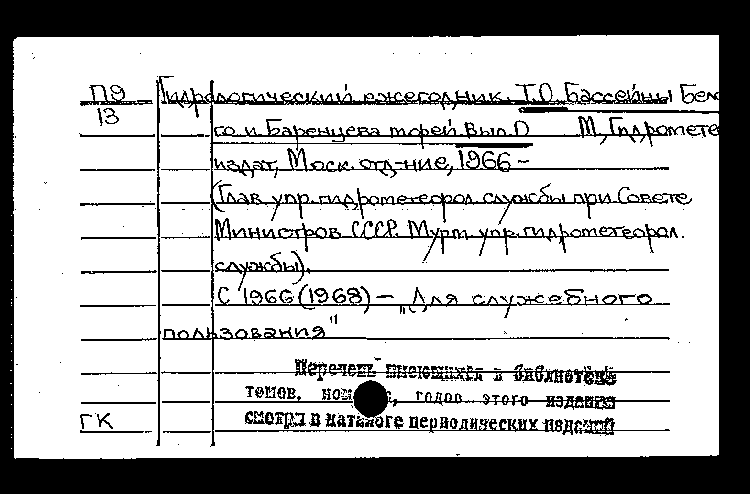 П9 Гидрологический ежегодник. Т.О. Бассейны Бело
13 го и Баренцева морей Вып.О М, Гидромете
издат, Моск. отд-ние, 1966 -
(Глав. упр. гидрометеорол. службы при Совете
Министров СССР. Мурм. упр. гидрометеорол.
службы).
С 1966 (1968) - „Для служебного
пользования"
Перечень имеющихся в библиотеке
томов, годов этого издания
смотри в каталоге периодических изданий
ГК